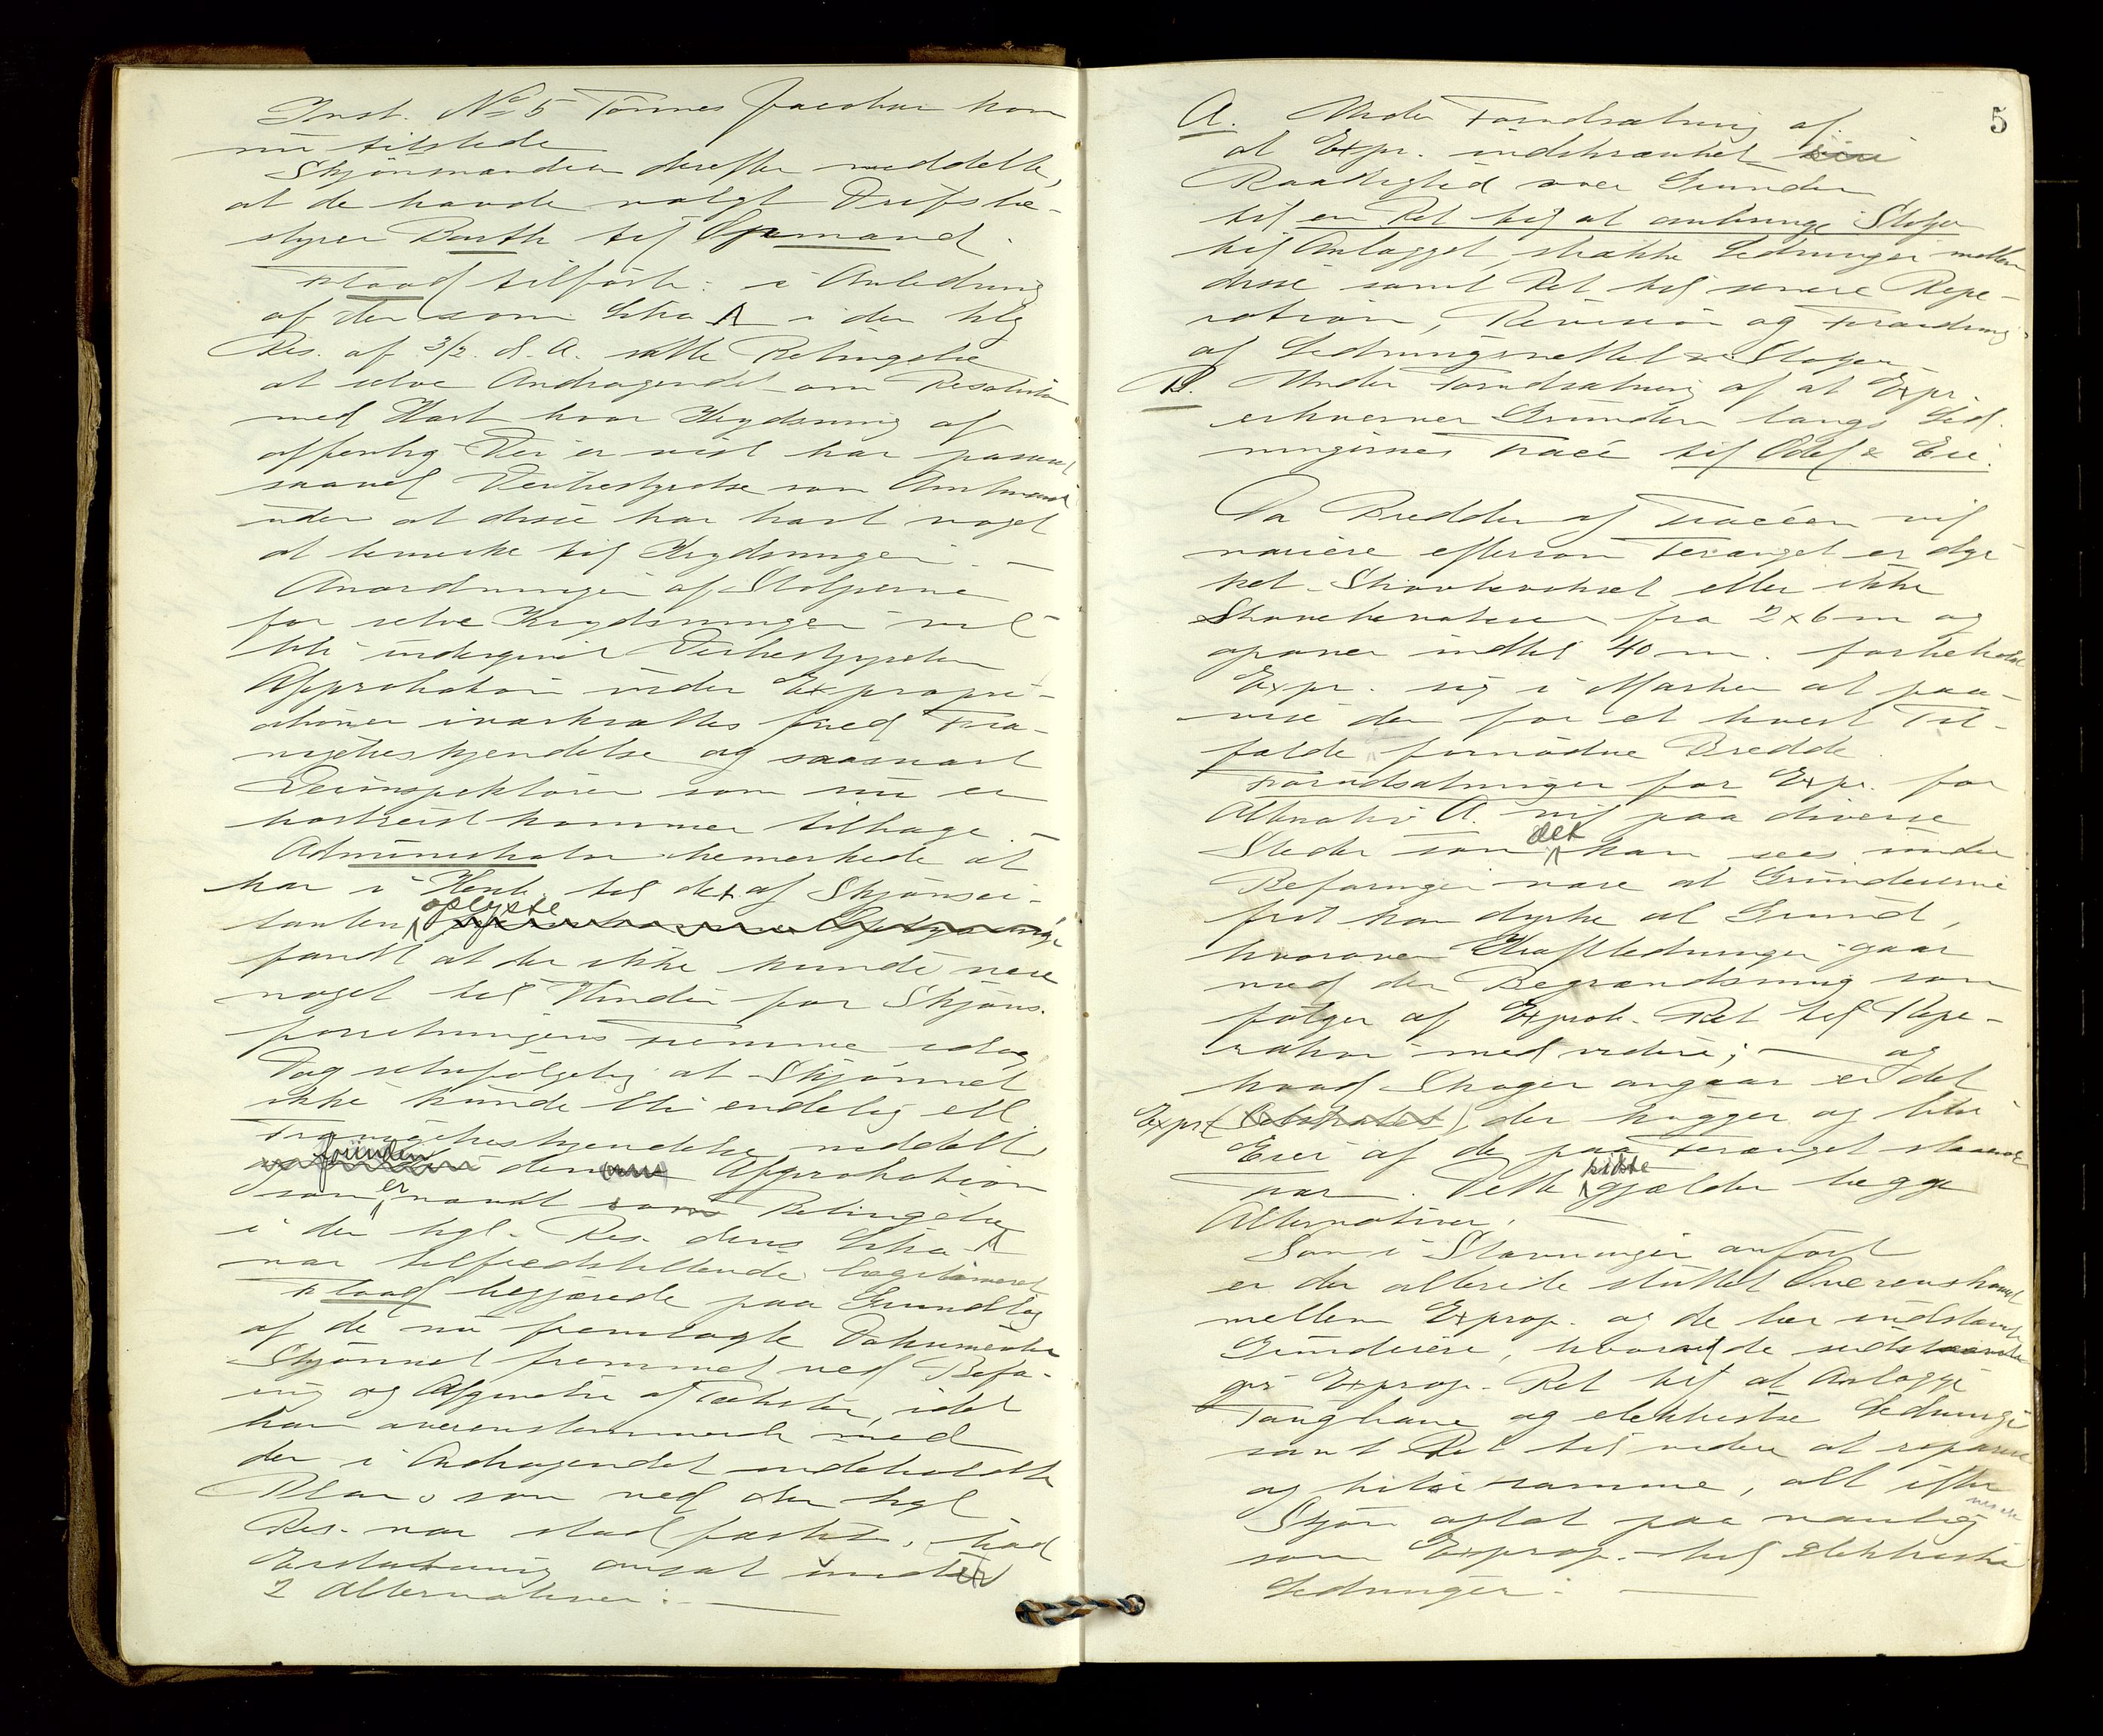 Inst. No 5 Tönnes Jacobsen kom
nu tilstede
Skjönsmændene derefter meddelte,
at de havde valgt Driftsbe-
styrer Barth til Formand.
Flood tilförte: i Anledning
af den som Litra A i den kgl
Res. af 3/2. d. A. satte Betingelse
at selve Andragendet om Resolution
med Kart hvor Krydsning af
offentlig Vei er vist har passeret
saavel Veibestyrelse som Amtmand
uden at disse har havt noget
at bemerke til Krydsningen. —
Anordningen af Stolperne
for selve Krydsningen vil
bli undergivet Veibestyrelsen
Approbation inden Expropri-
ationen iværksættes ved Fra-
vigelseskjendelse og saasnart
Veiinspektören som nu er
bortreist kommer tilbage. —
Administrator bemerkede at
han i Henh. til det af Skjönsci-
tanten oplyste
fandt at der ikke kunde være
noget til Hinder for Skjöns-
forretningens Fremme idag,
Dog selvfölgelig at Skjönnet
ikke kunde bli endelig ell
Fravigelseskjendelse meddelt,
förinden den Approbation
som er nævnt som Betingelse
i den kgl. Res. dens Litra A
var tilfredsstillende legitimeret
Flood begjærede paa Grundlag
af de nu fremlagte Dokumenter
Skjönnet fremmet ved Befa-
ring og Afgivelse af Takster, idet
han overensstemmende med
den i Andragendet indeholdte
Plan, som ved den kgl
Res. var stadfæstet,
Erstatning ansat under
2 Alternativer: —
5
A. Under Forudsætning af
at Expr. indskrænket sin
Raadighed over Grunden
til en Ret til at anbringe Stolper
til Anlægget, strække Ledninger mellem
disse samt Ret til senere Repa-
ration, Revision og Forandring
af Ledningsnettet & Stolper
B. Under Forudsætning af at Expr.
erhverver Grunden langs Led-
ningernes Tracé til Odel & Eie.
Da Bredden af Tracéen vil
variere eftersom Terænget er dyr-
ket. Skovbevokset eller ikke
Skovbevokset fra 2 x 6 m og
opover indtil 40 m. forbeholdt
Expr. sig i Marken at paa-
vise den for et hvert Til-
fælde fornödne Bredde.
Forudsætninger for Expr. for
Alternativ A. vil paa diverse
Steder som det kan sees under
Befaringen være at Grundeierne
frit kan dyrke al Grund,
hvorover Kraftledningen gaar
med den Begrændsning som
fölger af Exprok. Ret til Repa-
ration med videre; — og
hvad Skogen angaar er det
Expr. der hugger og blir
Eier af de paa Terænget staaende
Trær. Dette sidste gjælder begge
Alternativer. —
Som i Stævningen anfört
er der allerede sluttet Overenskomst
mellem Exprop. og de her indstævnte
Grundeiere, hvorved de sidstnævnte
gir Exprop. Ret til at Anlægge
Taugbane og elektriske Ledninger
samt Ret til videre at reparere
og tilse samme, alt efter
Skjön optat paa vanlig
som Exprop. til elektriske
Ledninger. —